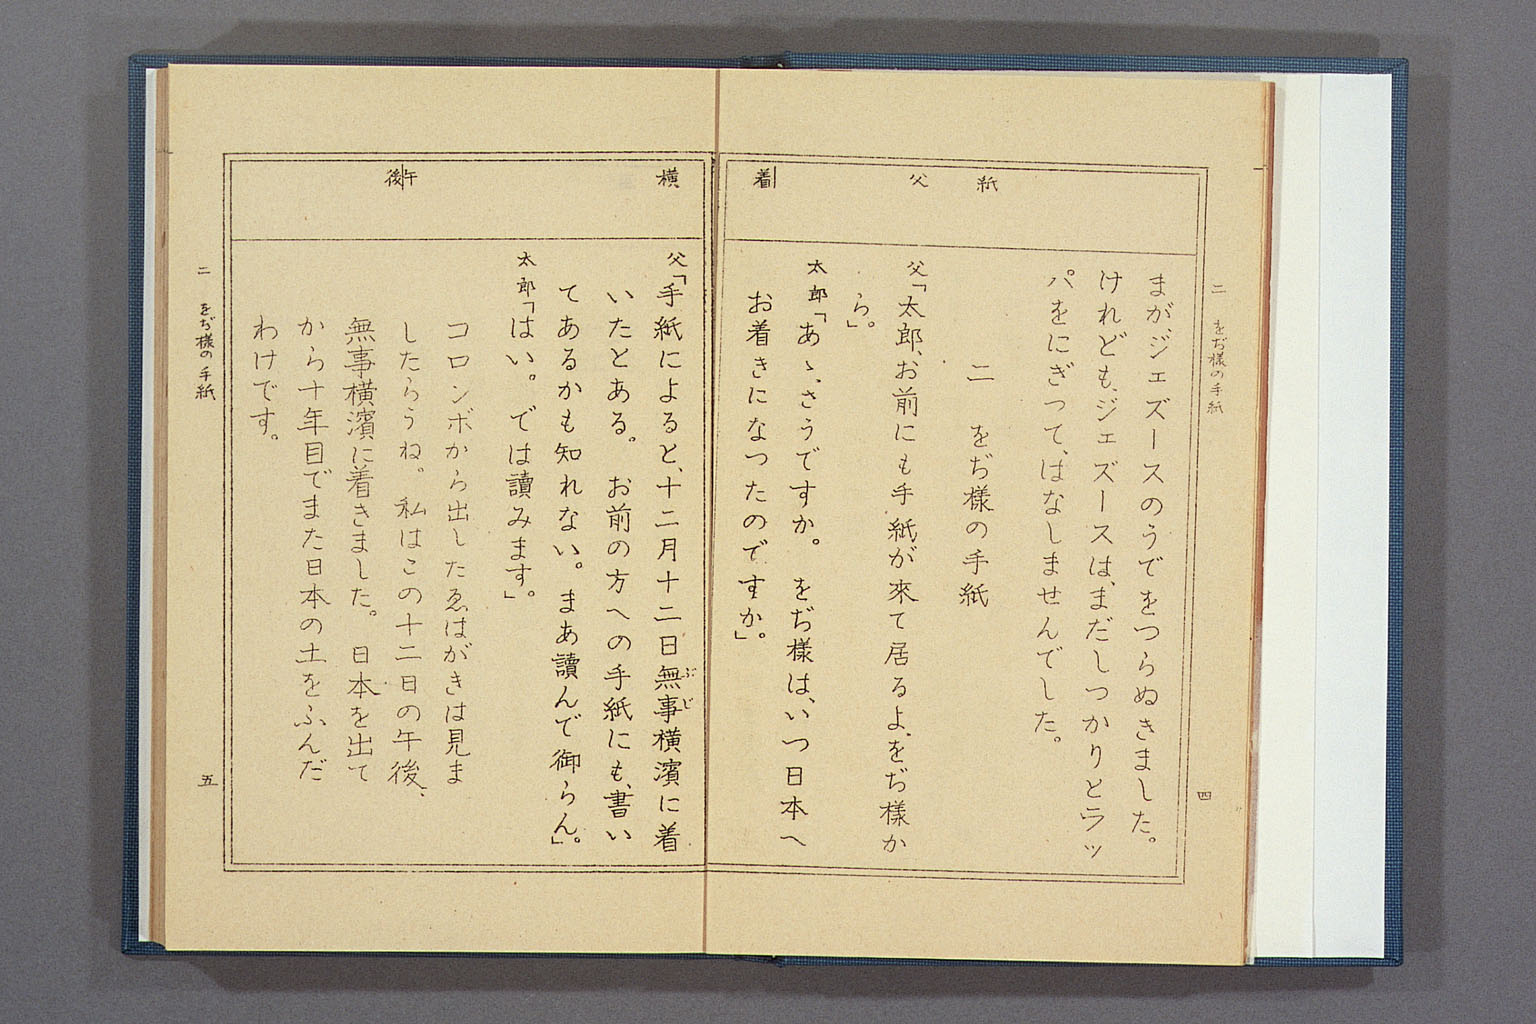 紙
父
着
二 をぢ様の手紙
四
まがジェズースのうでをつらぬきました。
けれども、ジェズースは、まだしつかりとラッ
パをにぎつて、はなしませんでした。
二 をぢ様の手紙
父「太郎、お前にも手紙が來て居るよ、をぢ様か
ら。」
太郎「あゝ、さうですか。 をぢ様は、いつ日本へ
お着きになつたのですか。」
横
午後
父「手紙によると、十二月十二日無事横濱に着
ぶじ
いたとある。 お前の方への手紙にも、書い
てあるかも知れない。 まあ讀んで御らん。」
太郎「はい。 では讀みます。」
コロンボから出したゑはがきは見ま
したらうね。 私はこの十二日の午後、
無事横濱に着きました。 日本を出て
から十年目でまた日本の土をふんだ
わけです。
二 をぢ様の手紙
五